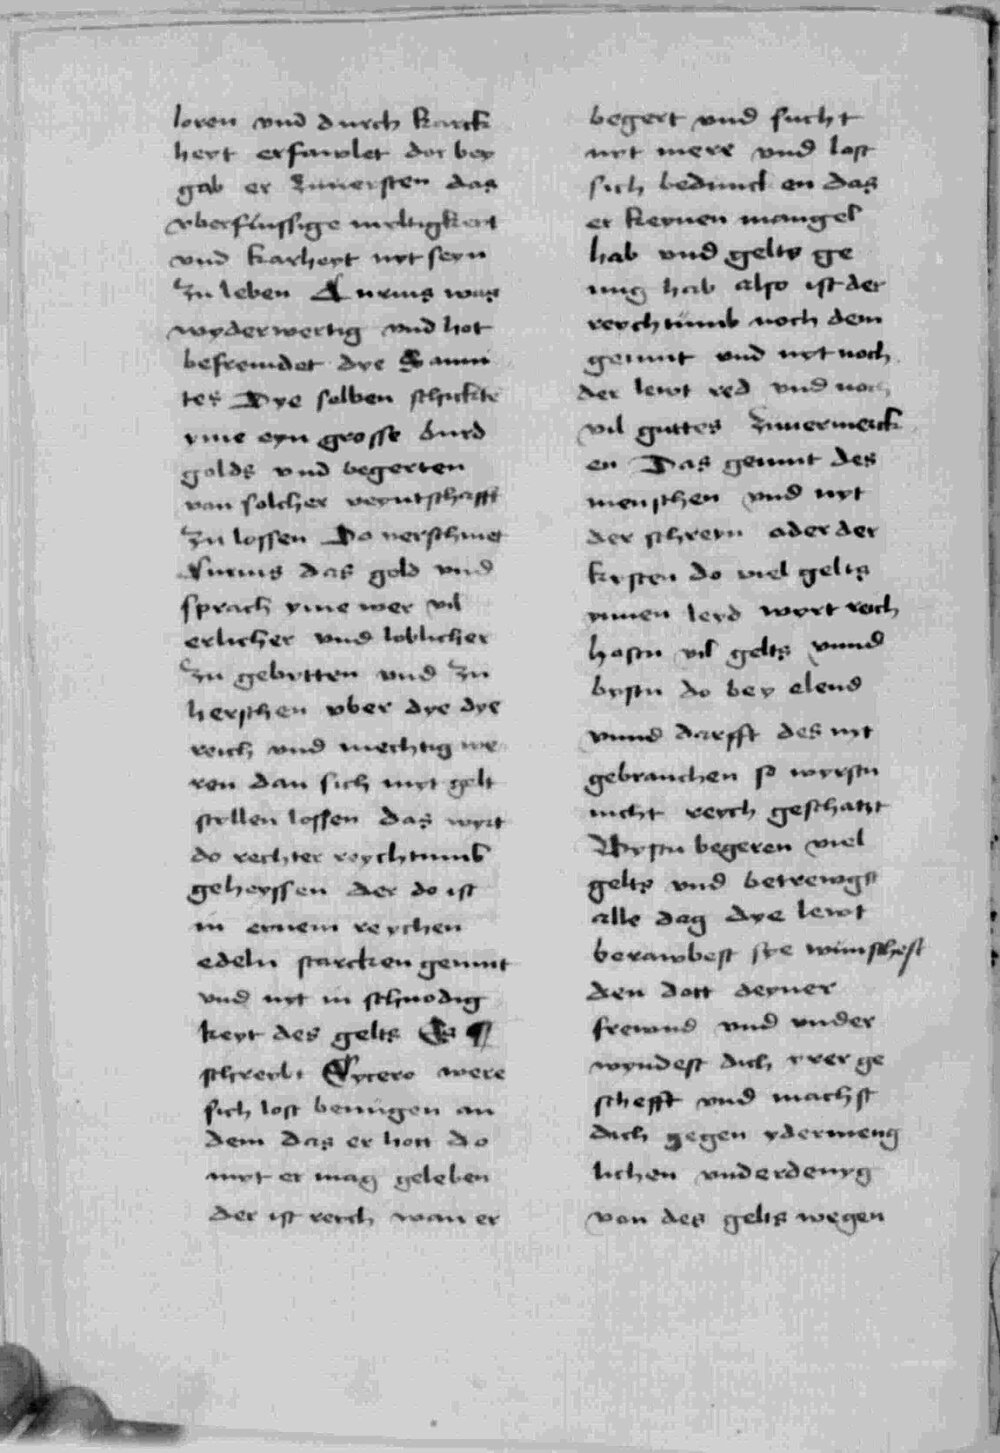 loren vnd durch karck
heyt erfawlet dor bey
gab er zuuersten das
vberflussige miltigkeit
vnd karheyt nyt seyn
zu leben Curius was
wyderwertig vnd hot
befremdet dye Samni
tes Dye selben schickte
yme eyn grosse burd
golds vnd begerten
von solcher veyntschafft
zu lossen Do verschmet
Curius das gold vnd
sprach yme wer vil
erlicher vnd loblicher
zu gebytten vnd zu
herschen vber dye dye
reich vnd mechtig we
ren dan sich myt gelt
stellen lossen das wyrt
do rechter reychtumb
geheyssen der do ist
in eynem reychen
edeln starcken gemut
vnd nyt in schnodig
keyt des gelts Es ¶
schreybt Cycero were
sich lost benugen an
dem das er hott do
myt er mag geleben
der ist reich wan er
begert vnd sucht
nyt mere vnd lost
sich beduncken das
er keynen mangel
hab vnd gelts ge
nug hab also ist der
reychtumb noch dem
gemut vnd nyt noch
der lewt red vnd noch
vil guttes zuuermerck
en Das gemut des
menschen vnd nyt
der schreyn oder der
kysten do viel gelts
ynnen leyd wyrt reich
hastu vil gelts vnnd
bystu do bey elend
vnnd darfft des nyt
gebrauchen so wyrstu
nicht reych geschatzt
Bystu begeren viel
gelts vnd betrewgst
alle dag dye lewt
berawbest sye wunschest
den dott deyner
frewnd vnd vnder
wyndest dich yrer ge
schefft vnd machst
dich gegen ydermeng
lichen vnderdenyg
von des gelts wegen